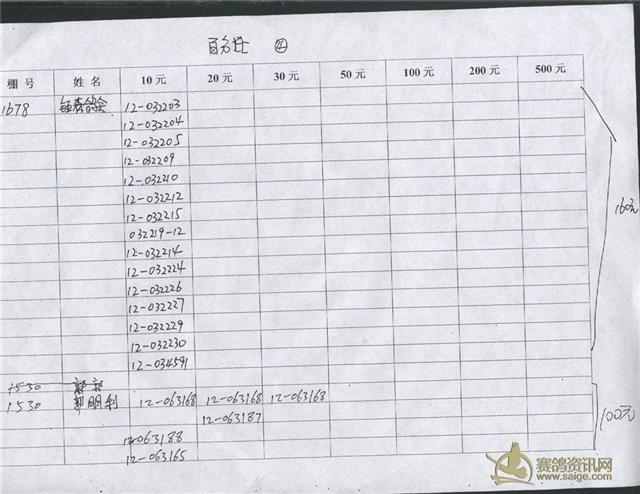 百分比 ④
棚号 姓名 10元 20元 30元 50元 100元 200元 500元
1678 12-032203
12-032204
12-032205
12-032209
12-03240
12-032212
12-032215
032219-12
12-032214
12-032224
12-032226
12-032227
12-032229
12-032230
12-034591
160元
1530
1530 郭明利 12-063168 12-063168 12-063168
12-063187
12-063188
12-063165
100元
赛鸽资讯网
www.saige.com